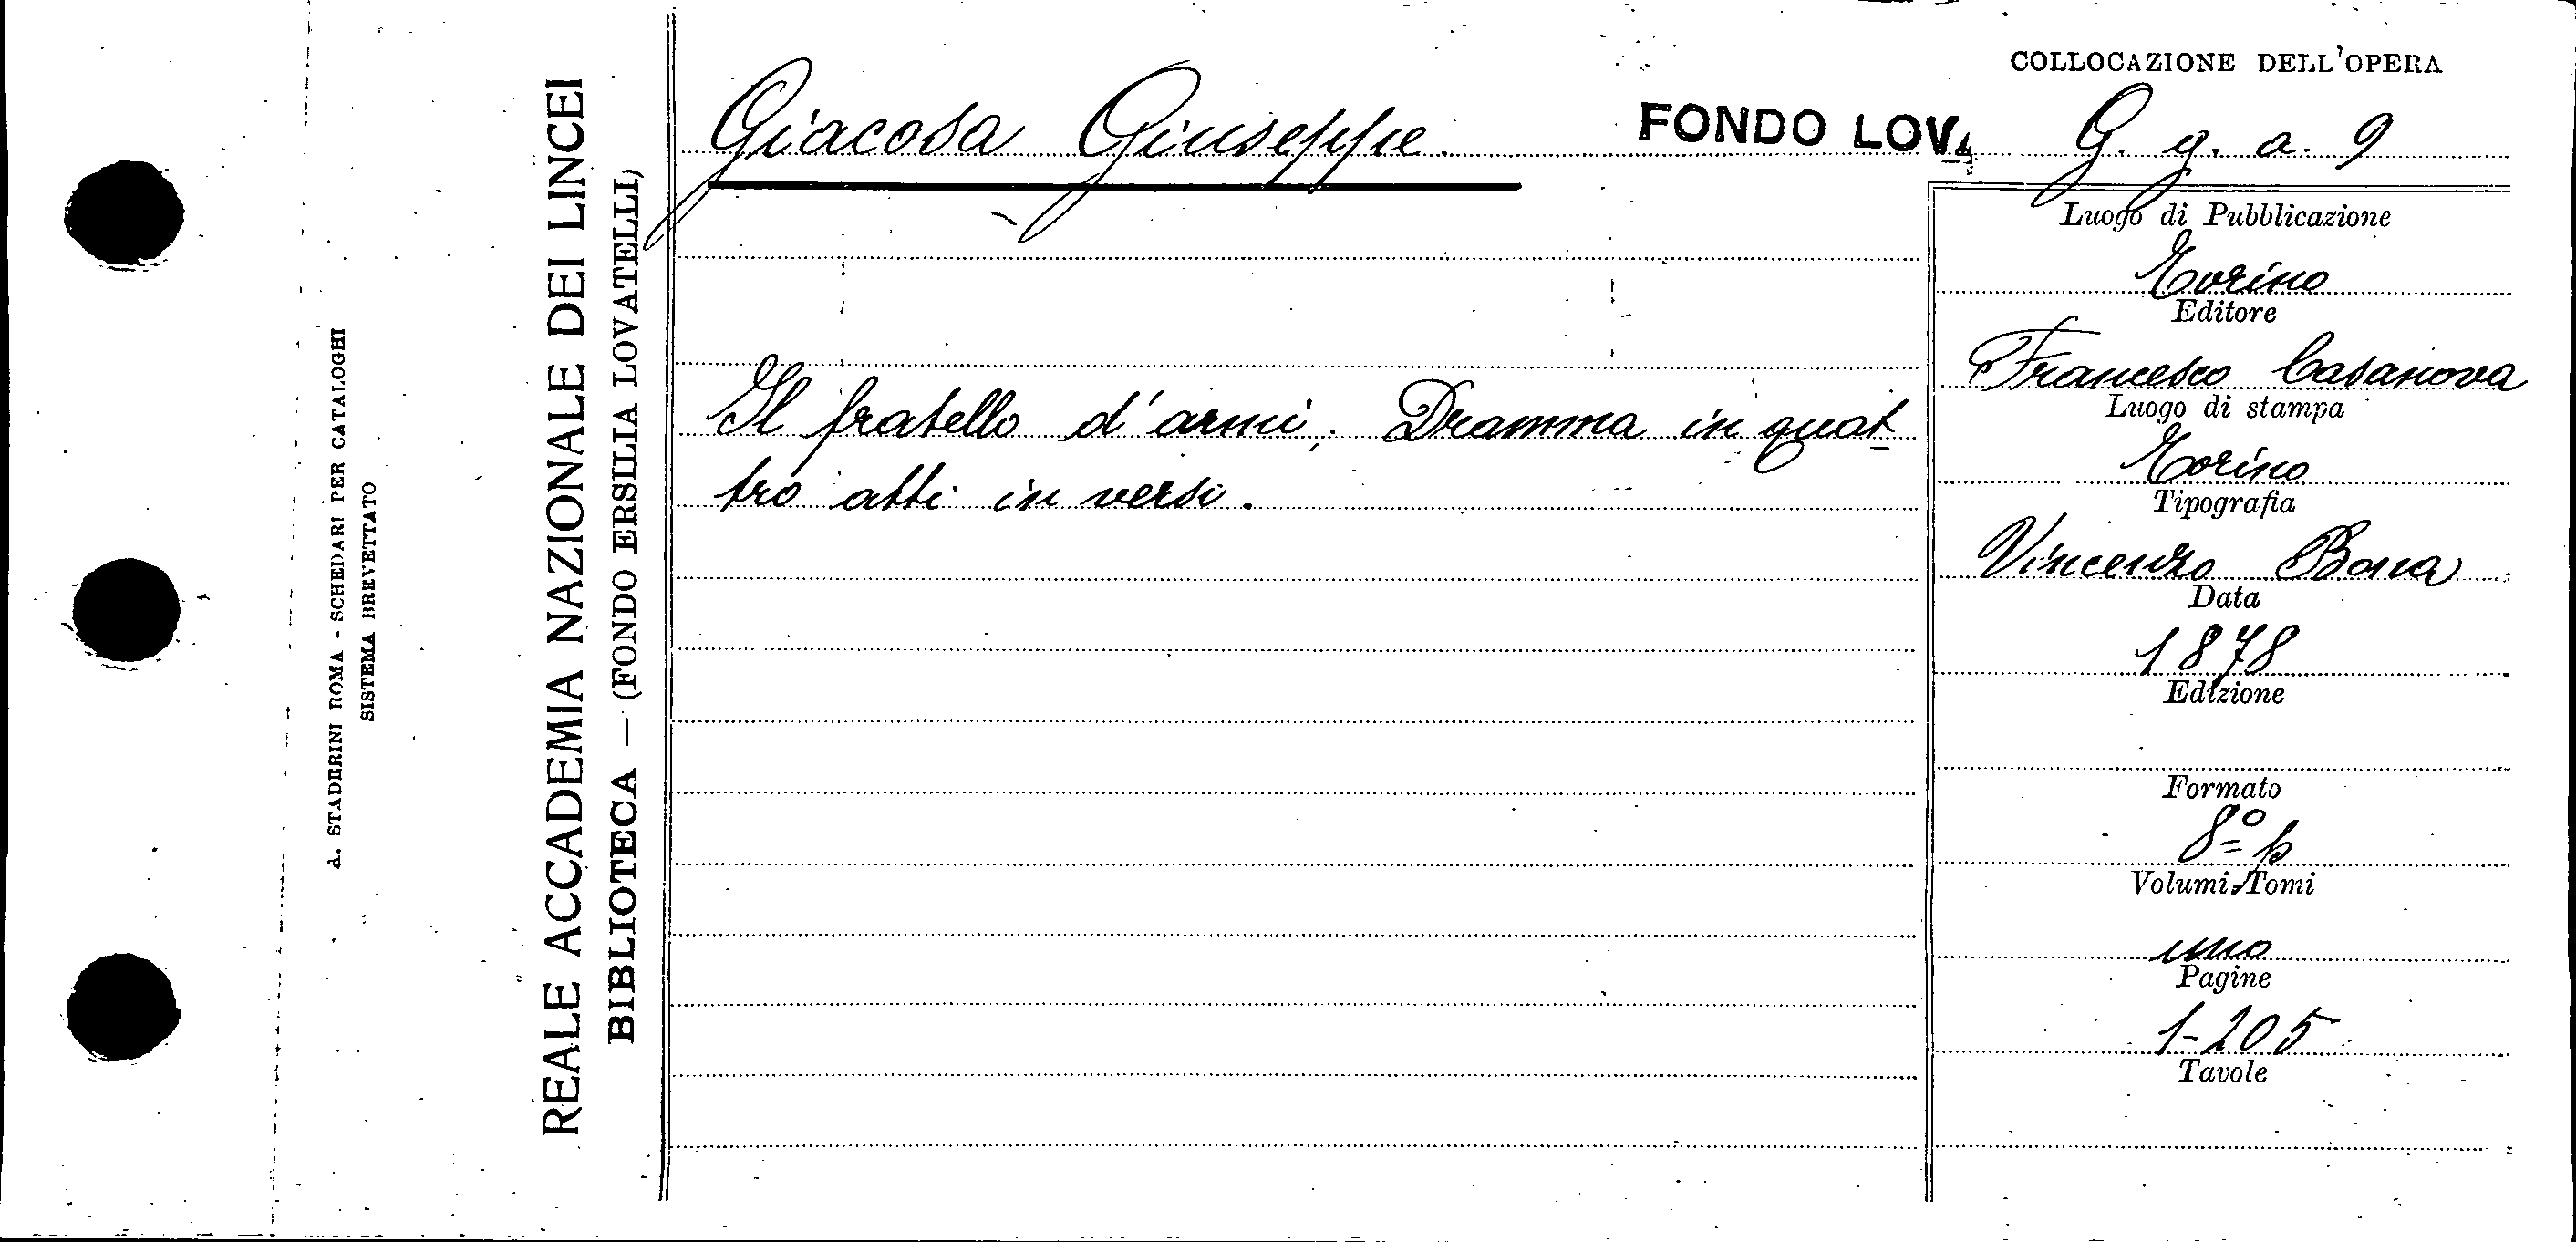 A. STADERINI ROMA - SCHEDARI PER CATALOGHI
SISTEMA BREVETTATO
REALE ACCADEMIA NAZIONALE DEI LINCEI
BIBLIOTECA — (FONDO ERSILIA LOVATELLI)
Giacosa Giuseppe.
Il fratello d'armi; Dramma in quat-
tro atti in versi.
COLLOCAZIONE DELL'OPERA
FONDO LOV. G. g. a. 9
Luogo di Pubblicazione
Torino
Editore
Francesco Casanova
Luogo di stampa
Torino
Tipografia
Vincenzo Bona
Data
1878
Edizione
Formato
8º p
Volumi-Tomi
uno
Pagine
1-205
Tavole